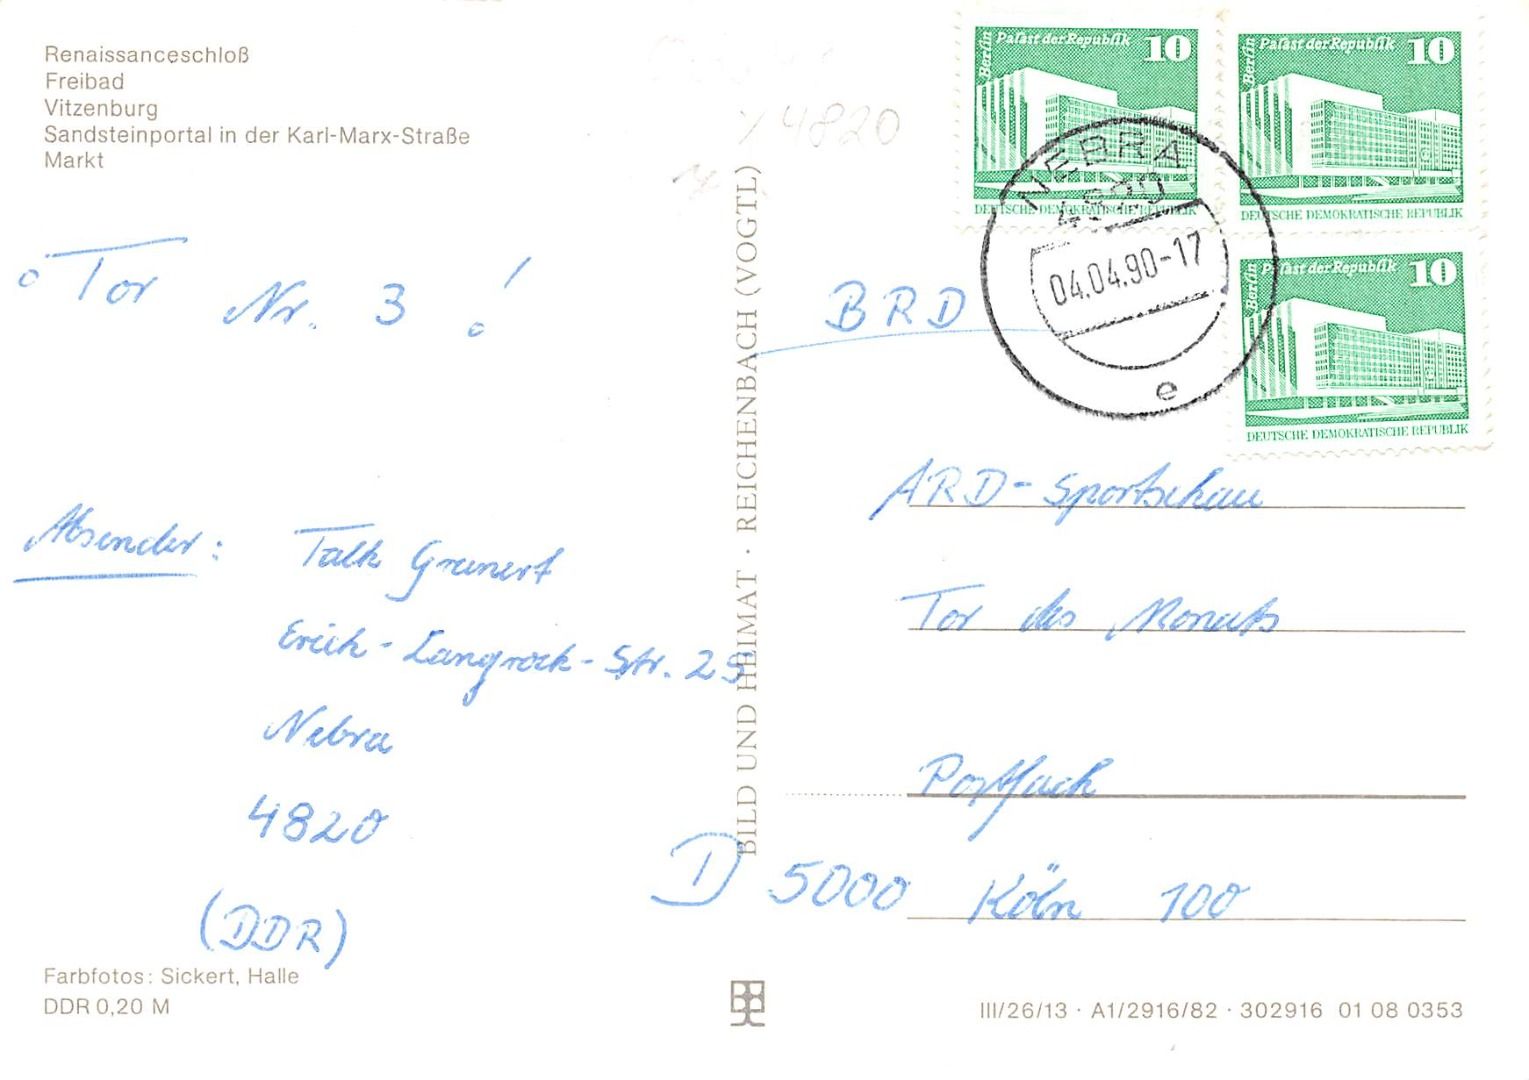 Renaissanceschloß
Freibad
Vitzenburg
Sandsteinportal in der Karl-Marx-Straße
Markt
4820
Tor Nr. 3 !
Absender: Falk Grunert
Erich-Langrock-Str. 25
Nebra
4820
(DDR)
Farbfotos: Sickert, Halle
DDR 0,20 M
BILD UND HEIMAT · REICHENBACH (VOGTL)
Berlin Palast der Republik 10
DEUTSCHE DEMOKRATISCHE REPUBLIK
Berlin Palast der Republik 10
DEUTSCHE DEMOKRATISCHE REPUBLIK
Berlin Palast der Republik 10
DEUTSCHE DEMOKRATISCHE REPUBLIK
NEBRA
4820
04.04.90-17
e
BRD
ARD-Sportschau
Tor des Monats
Postfach
D 5000 Köln 100
III/26/13 · A1/2916/82 · 302916 01 08 0353